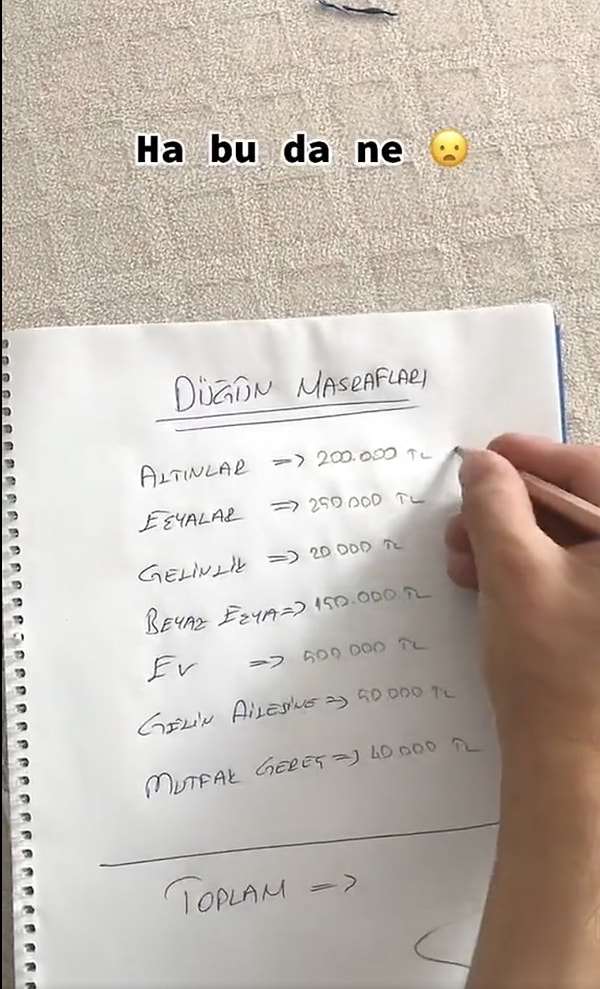 Ha bu da ne 😦
DÜĞÜN MASRAFLARI
ALTINLAR => 200.000 TL
EŞYALAR => 250.000 TL
GELİNLİK => 20 000 TL
BEYAZ EŞYA => 150.000 TL
EV => 500 000 TL
GELİN AİLESİNE => 50.000 TL
MUTFAK GEREÇ => 40 000 TL
TOPLAM =>